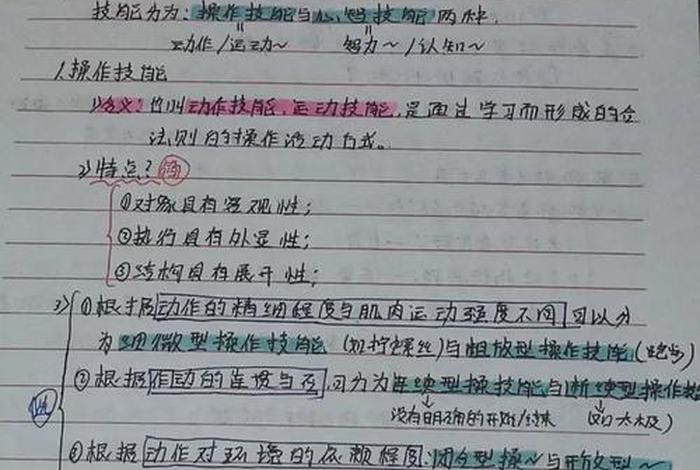 技能分为：操作技能与心智技能两种．
动作/运动～ 智力～/认知～
1.操作技能
1)含义：也叫动作技能、运动技能，是通过学习而形成的合
法则的操作活动方式。
2)特点？简
①对象具有客观性；
②执行具有外显性；
③结构具有展开性；
3)①根据动作的精细程度与肌肉运动强度不同可以分
为细微型操作技能（如拧螺丝）与粗放型操作技能（跑步）
②根据作动的连贯与否，可分为连续型操技能与断续型操作技
没有明确的开始/结束 （如太极）
④根据动作对环境的依赖程度：闭合型操～与开放型～